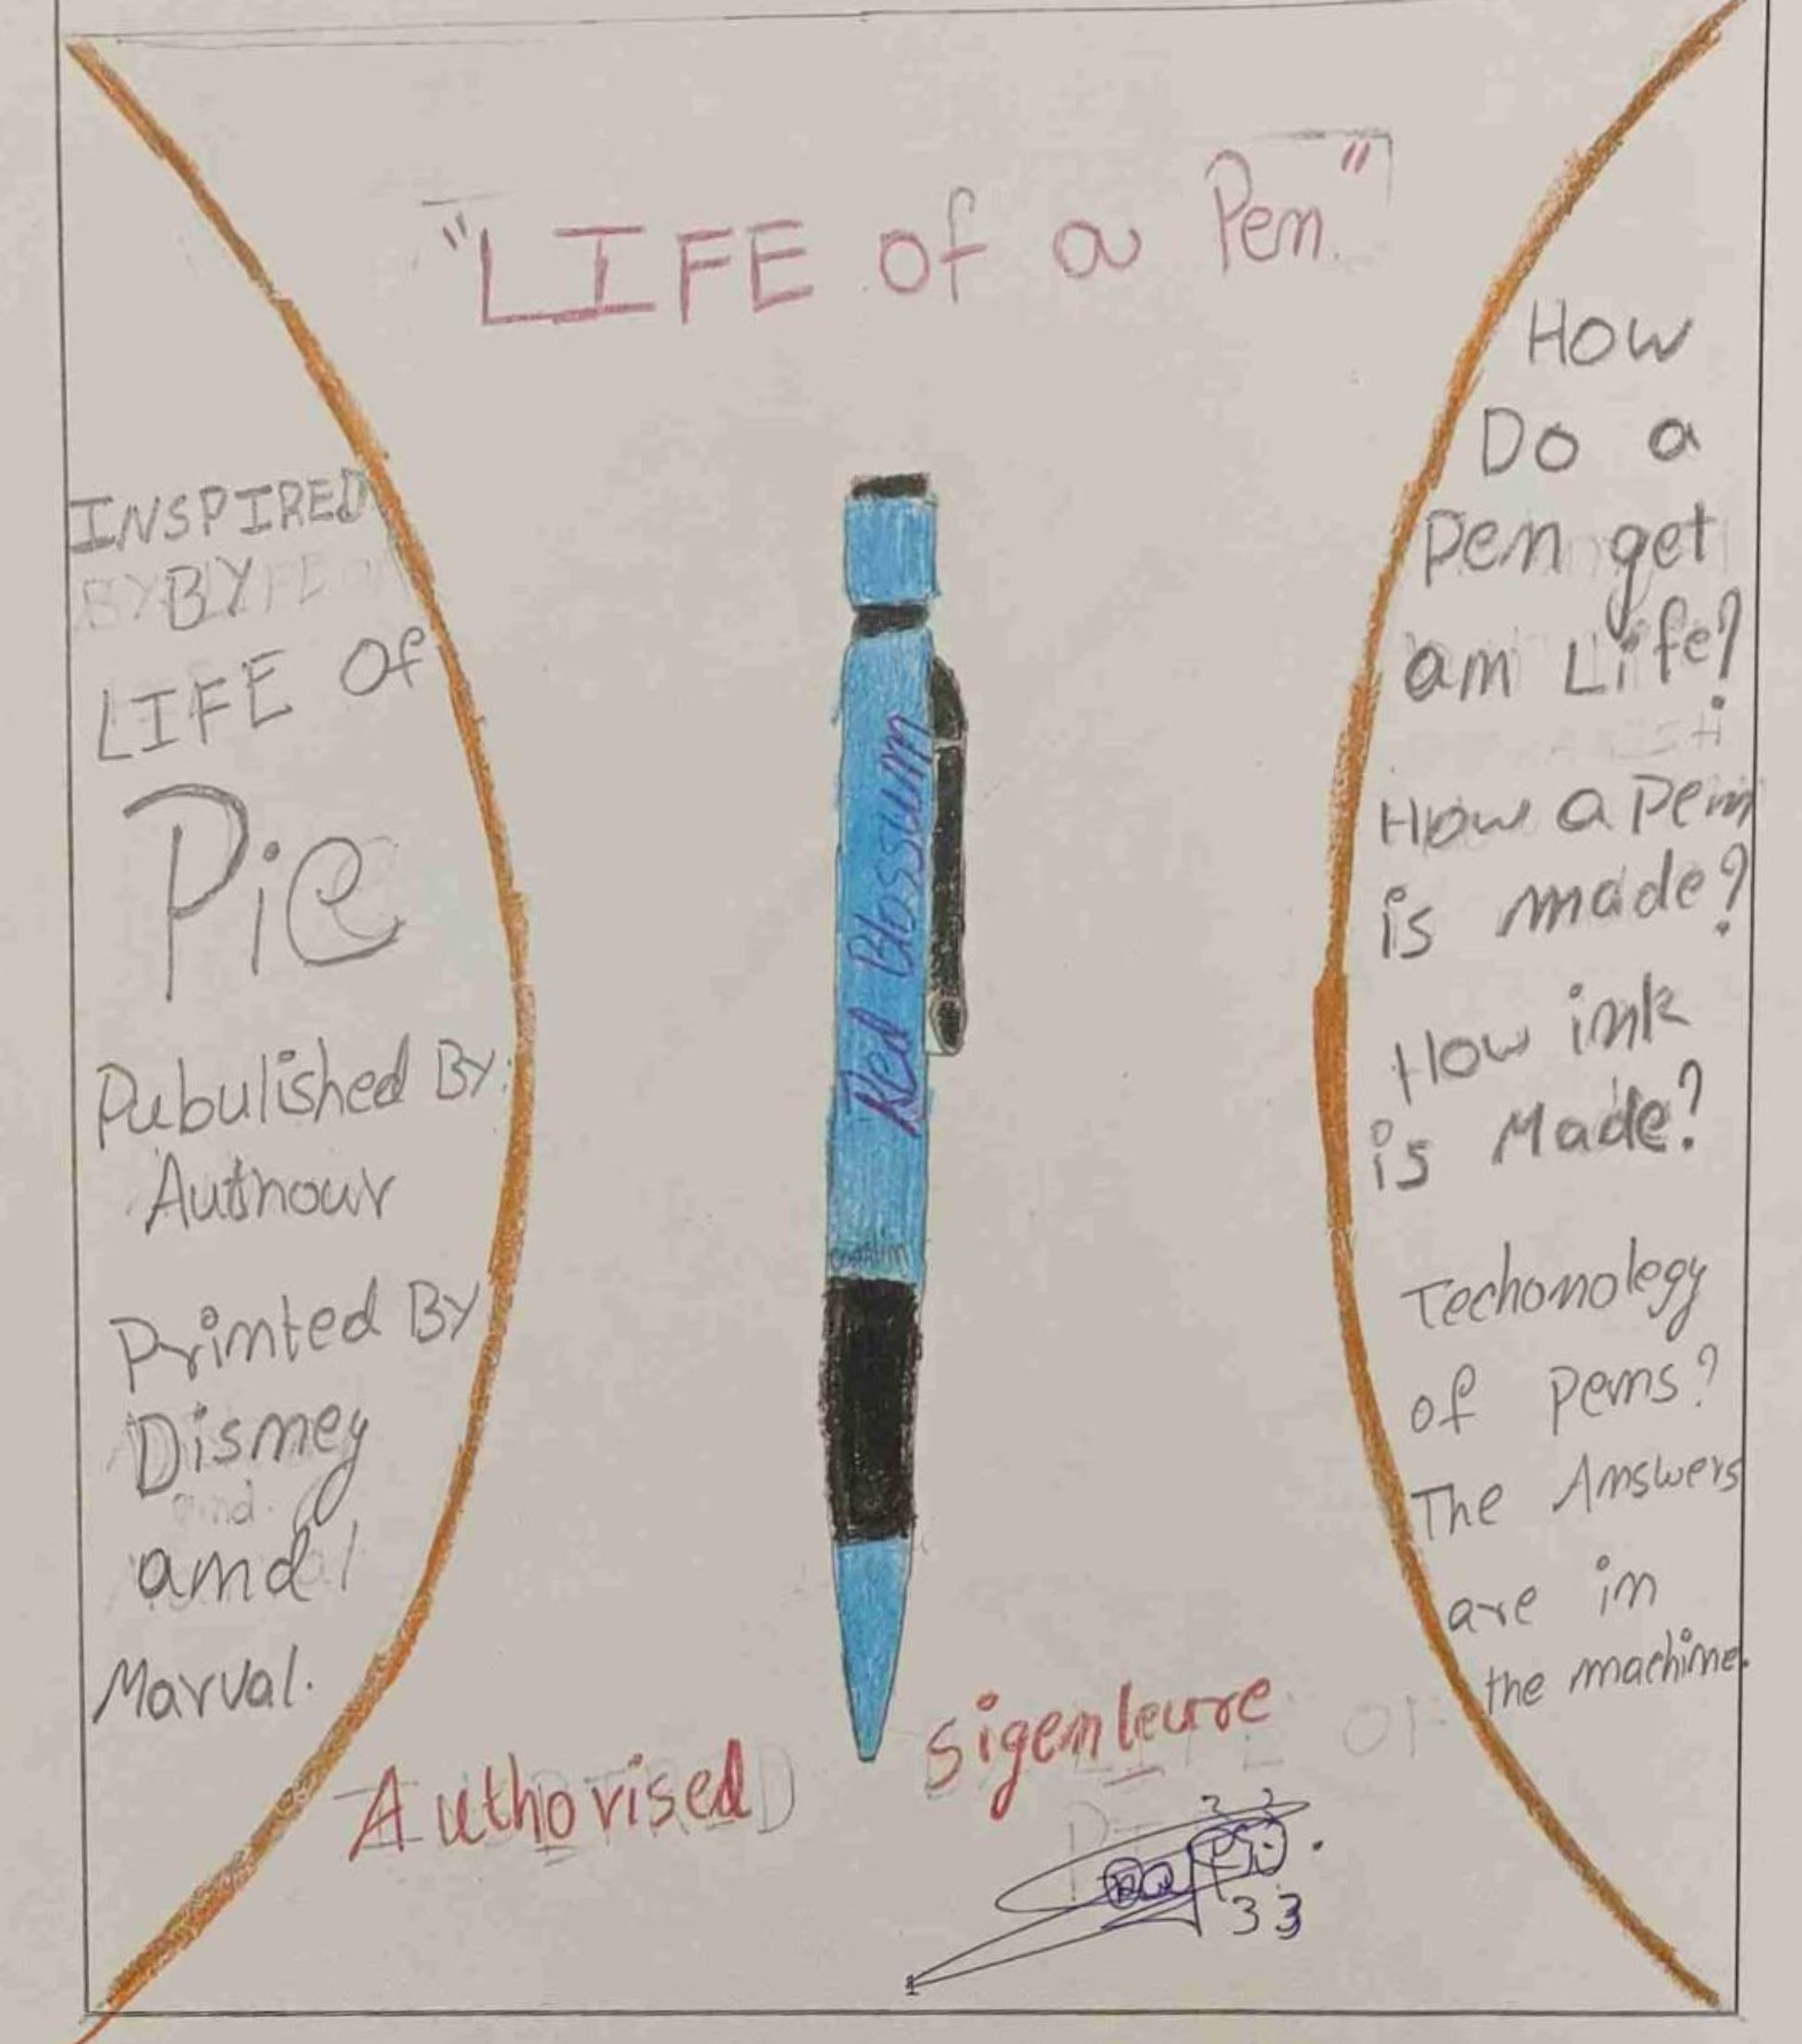 "LIFE of a Pen"
INSPIRED
BY
LIFE Of
Pie
Pubulished By:
Authour
Printed By
Disney
and
Marval.
Red Blossum
How
Do a
Pen get
an Life?
How a Pen
is made?
How ink
is Made?
Techonolegy
of Pens?
The Answers
are in
the machine.
Authorised sigenleure
33